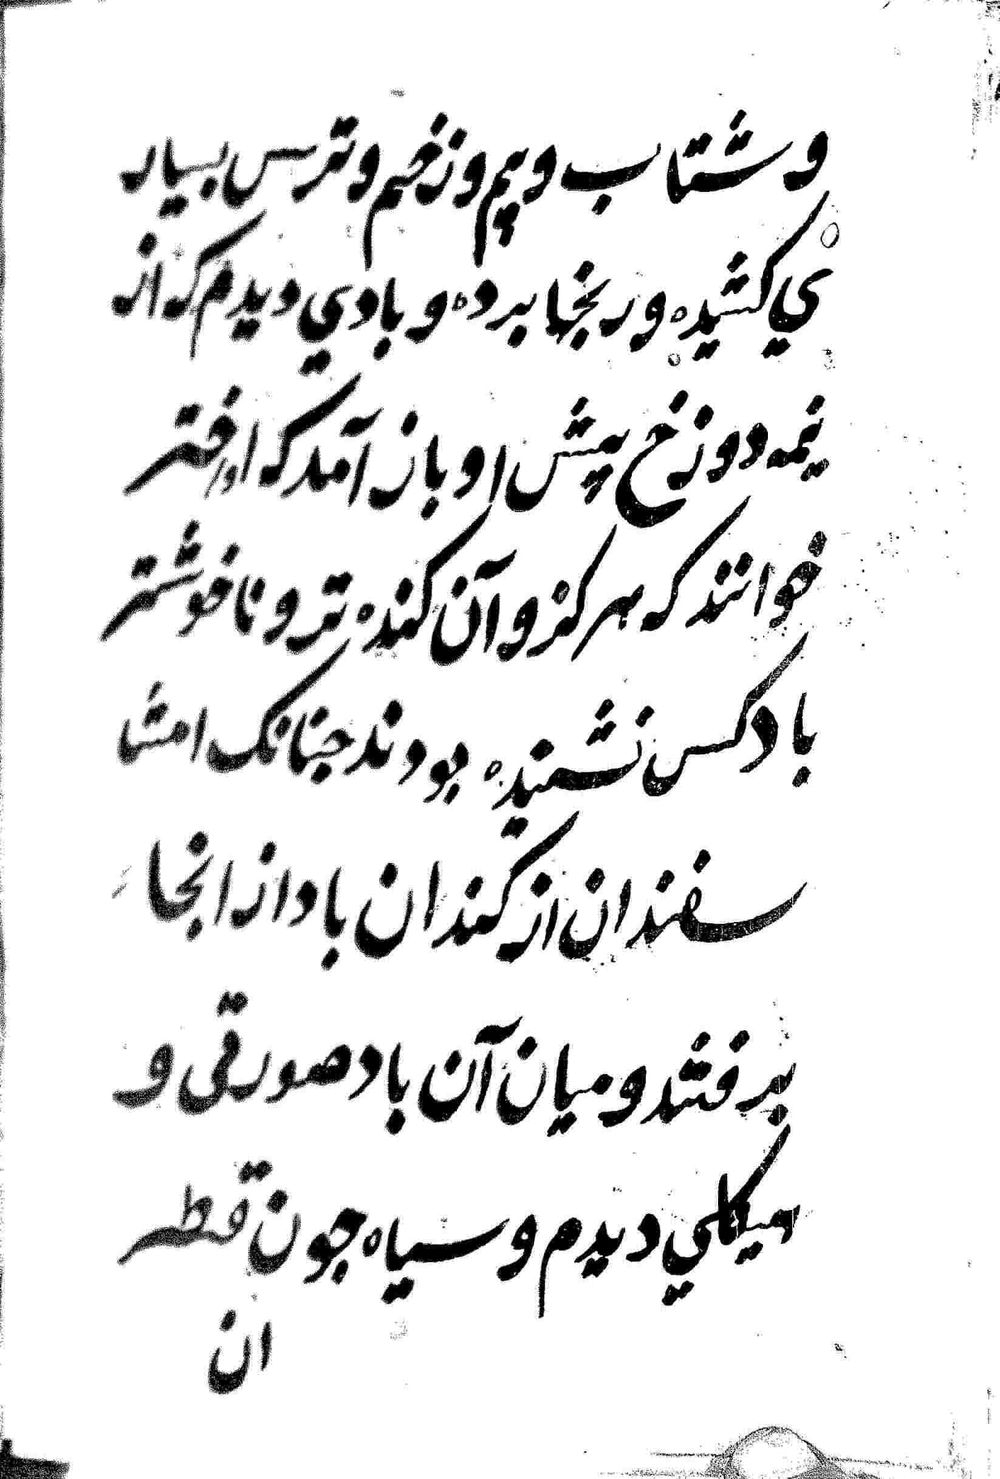 و شتاب و بیم و زخم و ترس بسیار
ي کشیده و رنجها برده و بادي دیدم که از
نیمه دوزخ پیش او باز آمد که اواختر
خوانند که هرکز و آن کنده تر و ناخوشتر
باد کس نشمیده بودند جنانک امشا
سفندان از کندان باد از انجا
بدفتند و میان آن باد صورتی و
هیکلي دیدم و سیاه جون قطر
ان